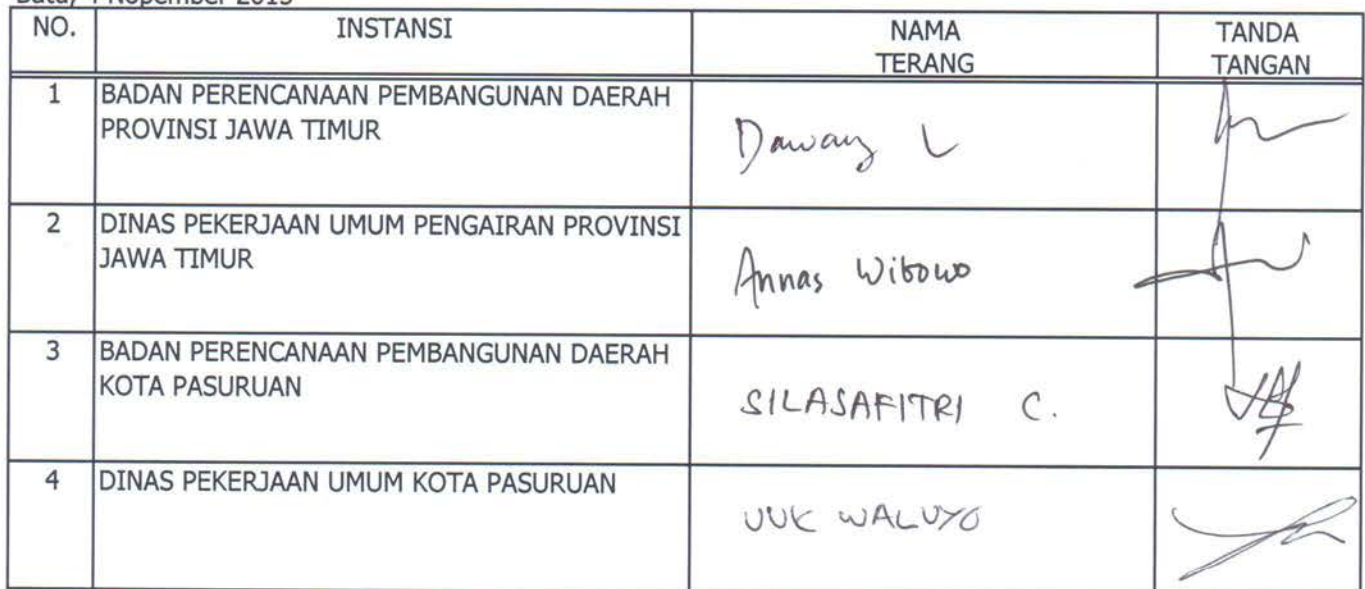 NO. INSTANSI NAMA TERANG TANDA TANGAN
1 BADAN PERENCANAAN PEMBANGUNAN DAERAH
PROVINSI JAWA TIMUR
Dawang L
2 DINAS PEKERJAAN UMUM PENGAIRAN PROVINSI
JAWA TIMUR
Annas Wibowo
3 BADAN PERENCANAAN PEMBANGUNAN DAERAH
KOTA PASURUAN
SILASAFITRI C.
4 DINAS PEKERJAAN UMUM KOTA PASURUAN
UUK WALUYO